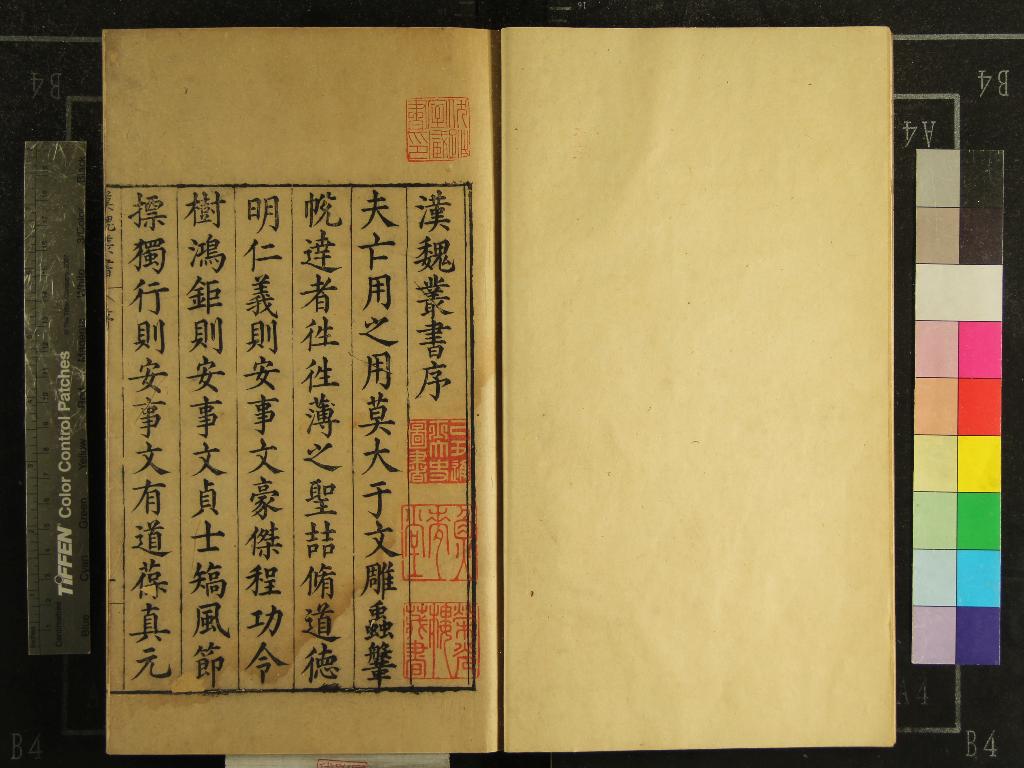 漢魏叢書序
夫亡用之用莫大于文雕蟲鞶
帨達者徃徃薄之聖喆脩道徳
明仁義則安事文豪傑程功令
樹鴻鉅則安事文貞士矯風節
摽獨行則安事文有道葆真元
TIFFEN Color Control Patches
B4
B4
A4
A4
B4
B4